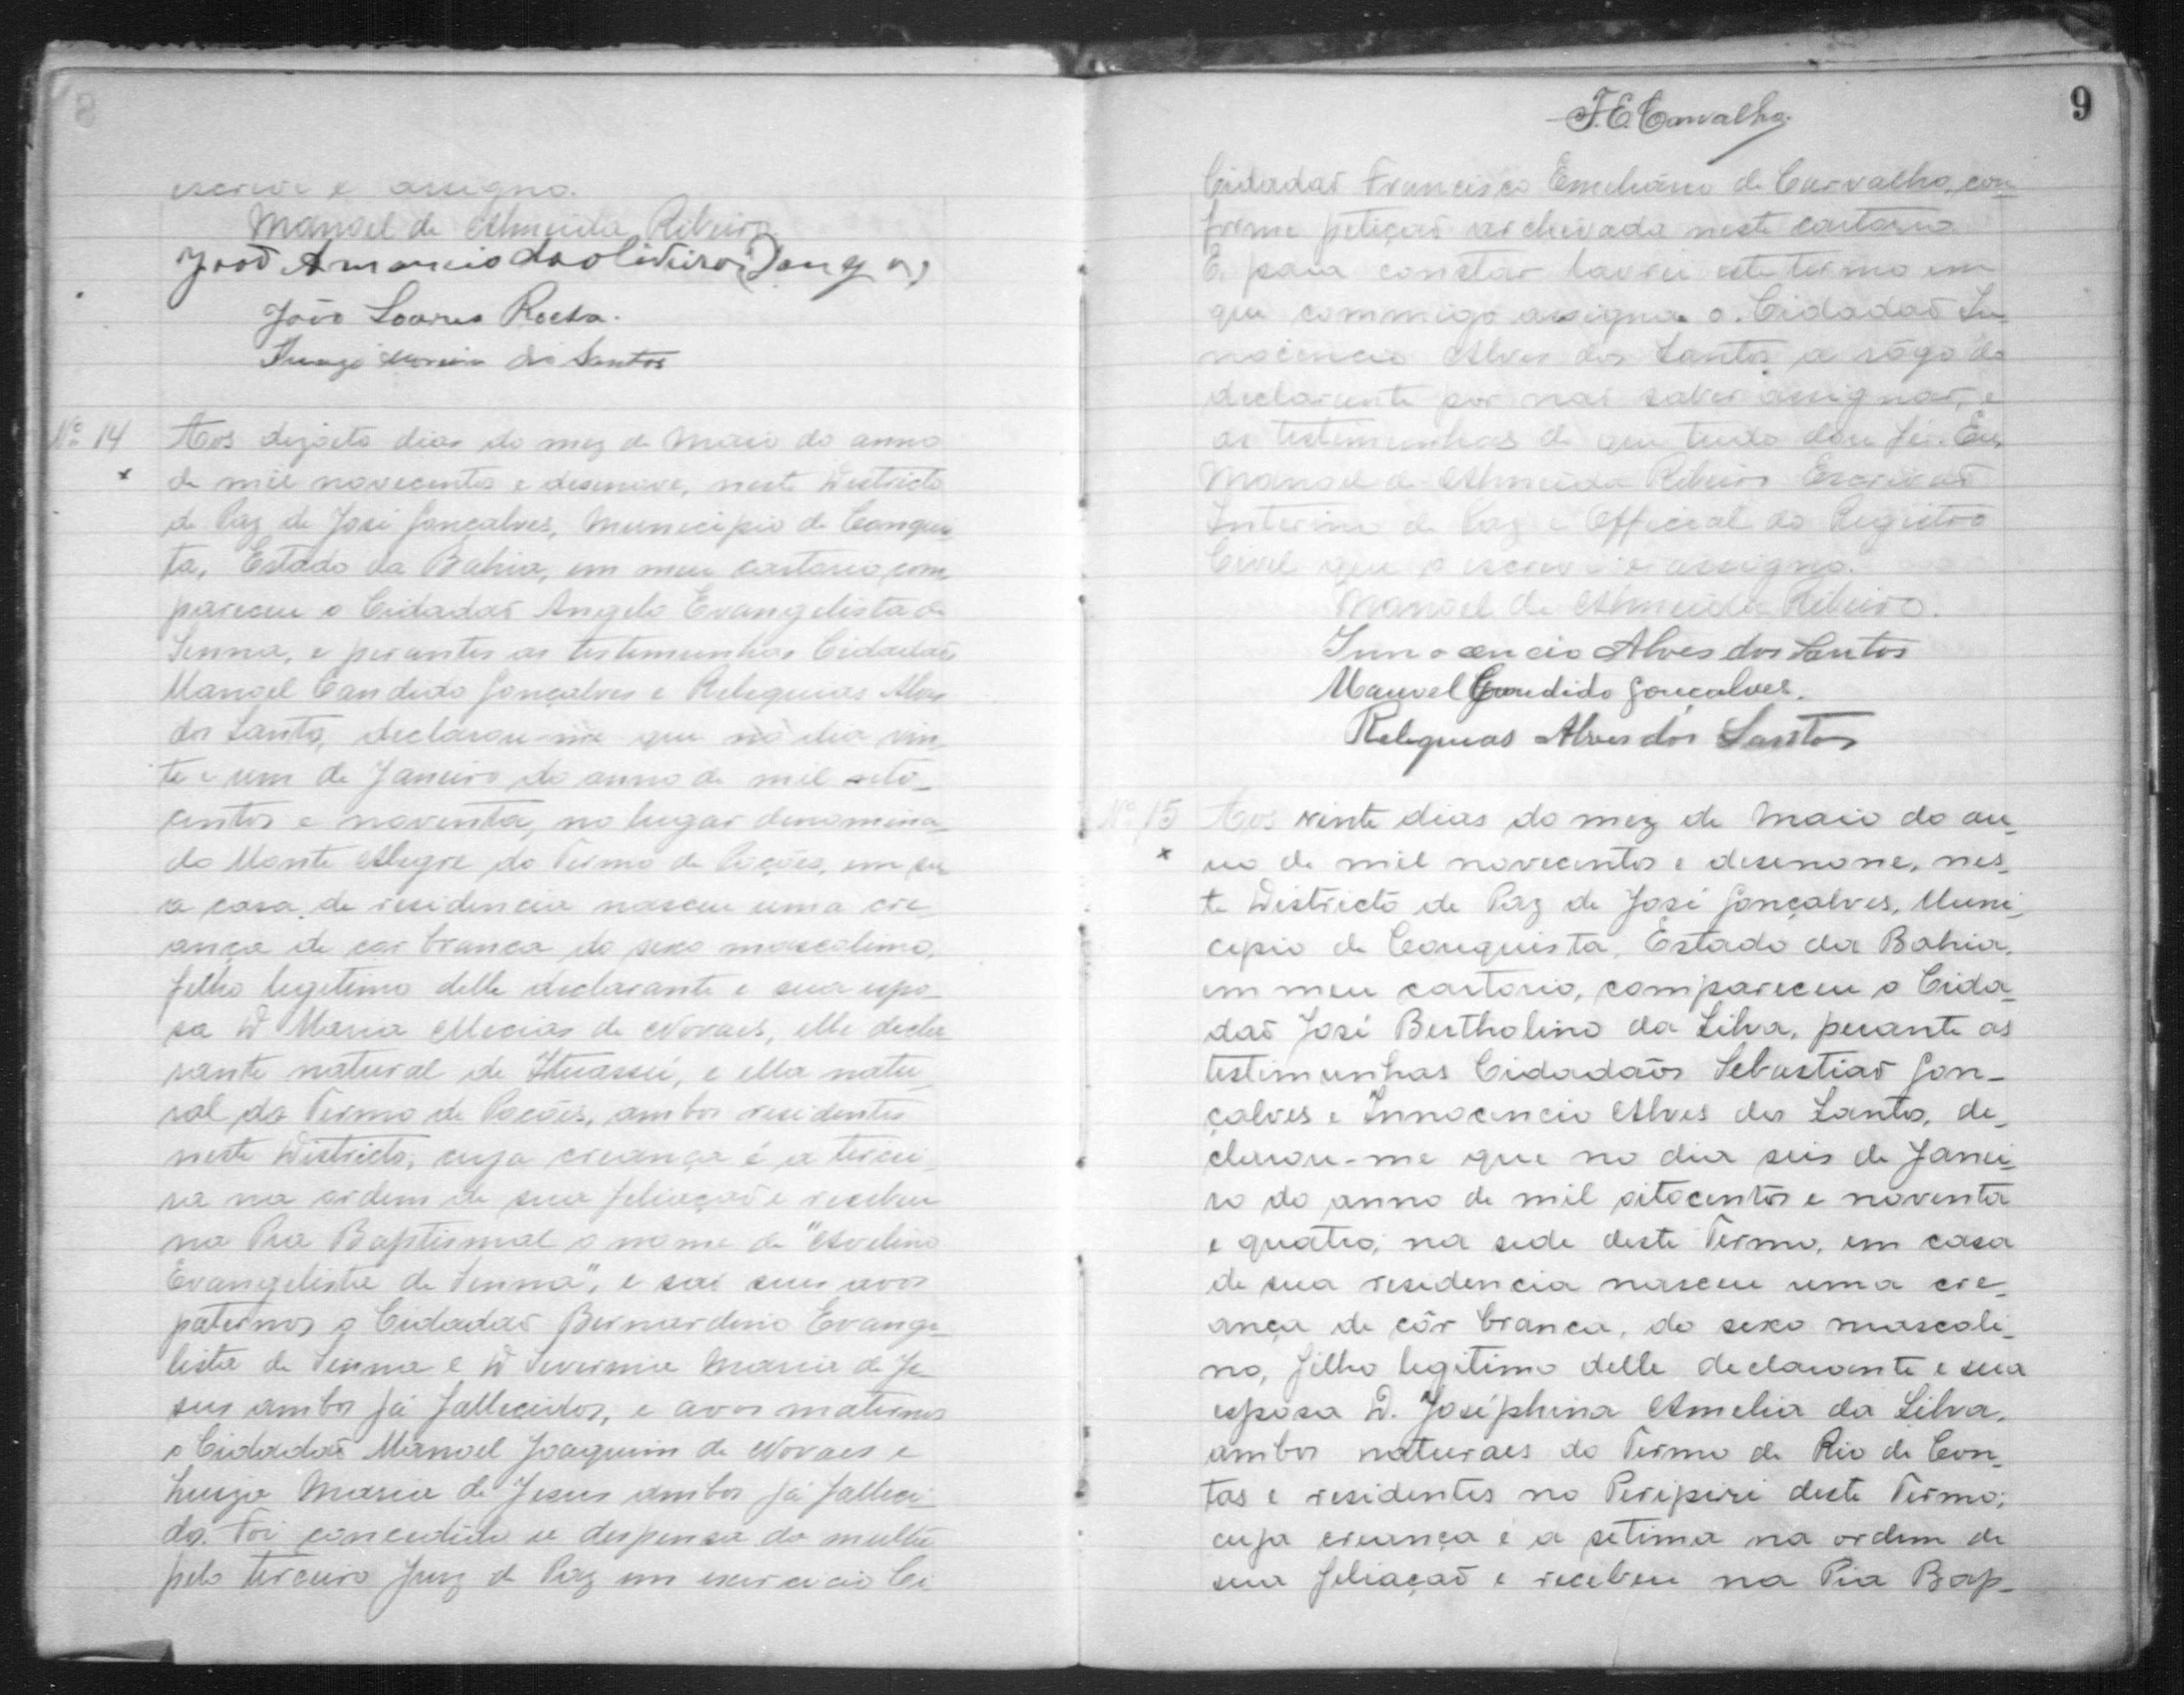 8
escrevi e assigno.
Manoel de Almeida Ribeiro
João Amancio de Oliveira
João Soares Rocha.
Moreira dos Santos
Nº 14
Aos dezoito dias do mez de Maio do anno
de mil novecentos e desenove, neste Districto
de Paz de José Gonçalves, Municipio de Conquis
ta, Estado da Bahia, em meu cartorio, com
pareceu o Cidadaõ Angelo Evangelista de
Senna, e perantes as testemunhas Cidadaõs
Manoel Candido Gonçalves e Reliquias Alves
dos Santos, declarou-me que no dia vin
te e um de Janeiro do anno de mil oito_
centos e noventa, no lugar denomina_
do Monte Alegre do Termo de Poções, em su
a casa de residencia nasceu uma cre_
ança de cor branca do sexo mascolino,
filho legitimo delle declarante e sua espo_
sa D Maria Mecias de Novaes, elle decla
rante natural de Ituassú, e ella natu_
ral do Termo de Poções, ambos residentes
neste Districto, cuja creança é a tercei_
ra na ordem de sua filiaçaõ e recebeu
na Pia Baptismal o nome de "Avelino
Evangelista de Senna", e saõ seus avos
paternos o Cidadaõ Bernardino Evange_
lista de Senna e D Maria de Je_
sus ambos já fallecidos, e avos maternos
o Cidadaõ Manoel Joaquim de Novaes e
Luiza Maria de Jesus ambos já falleci_
dos. Foi concedida a despensa da multa
pelo terceiro Juiz de Paz em exercicio Ci
F. E. Carvalho.
9
Cidadaõ Francisco Emeliano de Carvalho, con_
forme petiçaõ archivada neste cartorio
E para constar lavrei este termo em
que commigo assigna o Cidadaõ In_
nocencio Alves dos Santos a rôgo do
declarante por naõ saber assignar, e
as testemunhas de que tudo dou fé. Eu,
Manoel de Almeida Ribeiro Escrivaõ
Interino de Paz e Official do Registro
Civil que o escrevi e assigno.
Manoel de Almeida Ribeiro.
Innocencio Alves dos Santos
Manoel Candido Gonçalves.
Reliquias Alves dos Santos
Nº 15
Aos vinte dias do mez de Maio do an_
no de mil novecentos e desenove, nes_
te Districto de Paz de José Gonçalves, Muni_
cipio de Conquista, Estado da Bahia,
em meu cartorio, compareceu o Cida_
daõ José Bertholino da Silva, perante as
testimunhas Cidadaõs Sebastiaõ Gon_
çalves e Innocencio Alves dos Santos, de_
clarou-me que no dia seis de Janei_
ro do anno de mil oitocentos e noventa
e quatro, na sede deste Termo, em casa
de sua residencia nasceu uma cre_
ança de côr branca, do sexo mascoli_
no, filho legitimo delle declarante e sua
esposa D. Joséphina Amelia da Silva,
ambos naturaes do Termo de Rio de Con_
tas e residentes no Peripiri deste Termo;
cuja creança é a setima na ordem de
sua filiaçaõ e recebeu na Pia Bap_